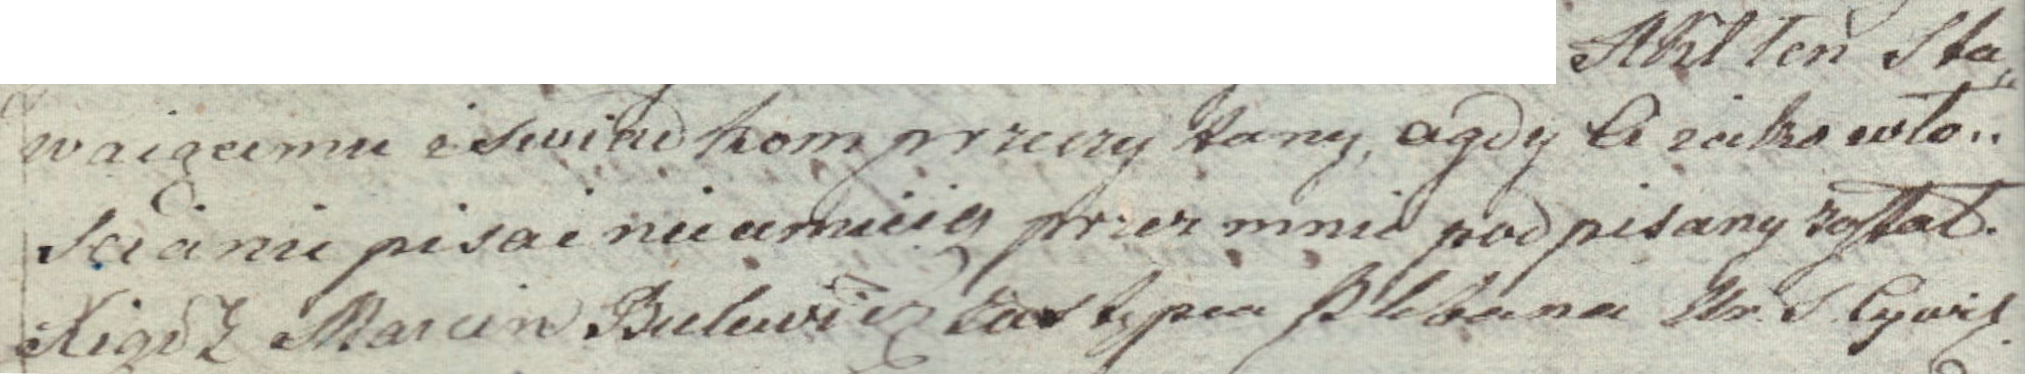 Akt ten sta„
waiącemu i swiadkom przeczytany, a gdy ci iako wło„
scianie pisac nieumieią przezemnie podpisany został.
Xiądz Marcin Bulewicz Zastępca Plebana Ur. S. Cywil.